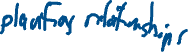 planting relationships